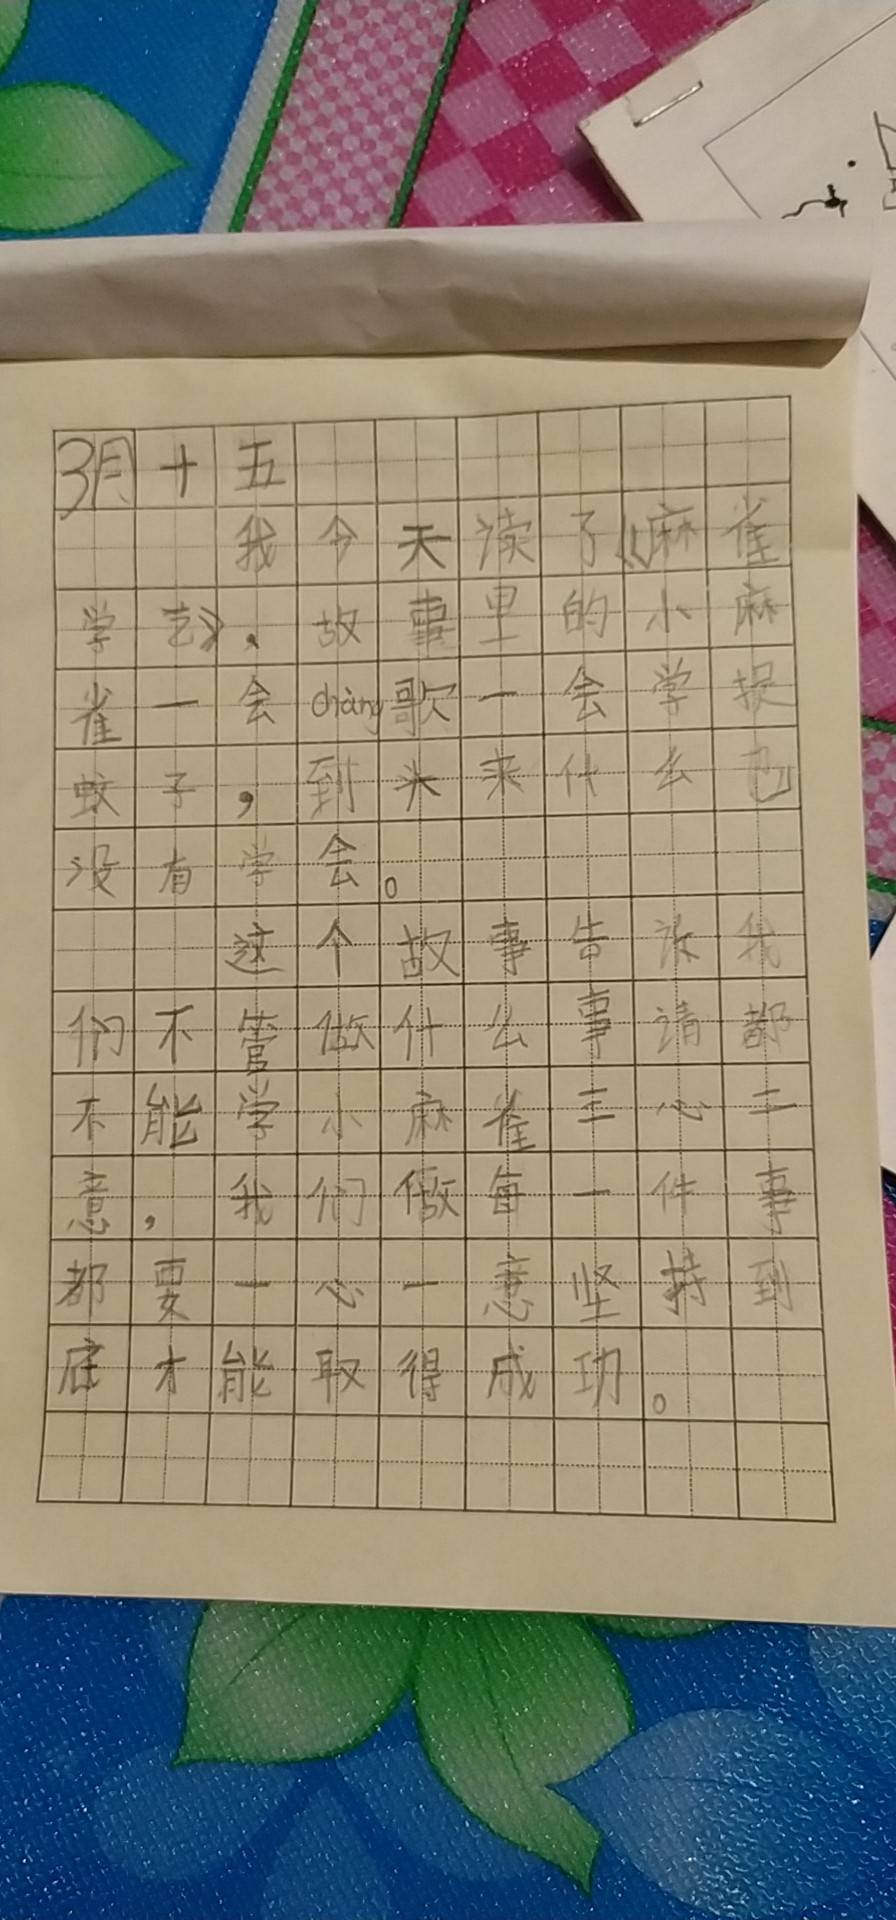 3月十五
我今天读了《麻雀
学艺》，故事里的小麻
雀一会chàng歌一会学捉
蚊子，到头来什么也
没有学会。
这个故事告诉我
们不管做什么事请都
不能学小麻雀三心二
意，我们做每一件事
都要一心一意坚持到
底才能取得成功。